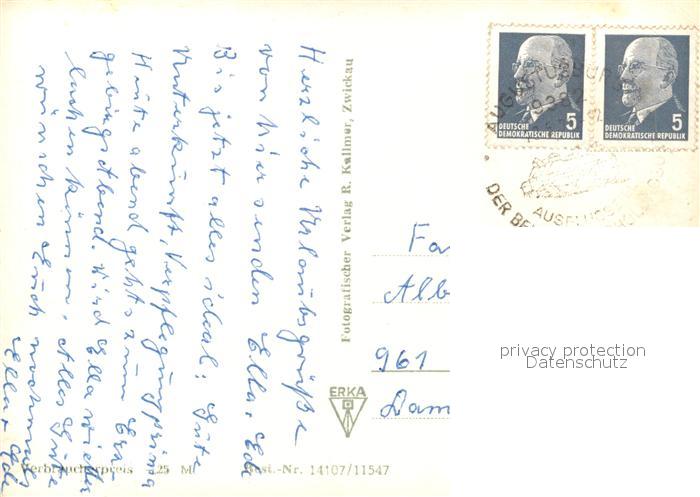 Herzliche Urlaubsgrüße
von hier senden Ella, Ede
Bis jetzt alles ideal: Gute
Unterkunft, Verpflegung prima
Heute abend geht's zum Erz-
gebirgsabend. Wird Ella wieder
lachen können. Alles Gute
wünschen Euch nochmals
Ella + Ede
Fotografischer Verlag R. Kallmer, Zwickau
ERKA
Verbraucherpreis -,25 M
Best.-Nr. 14107/11547
DEUTSCHE
DEMOKRATISCHE REPUBLIK
5
DEUTSCHE
DEMOKRATISCHE REPUBLIK
5
AUGUSTUSBURG
9382
DER
Fa
Alb
961
Dam
privacy protection
Datenschutz